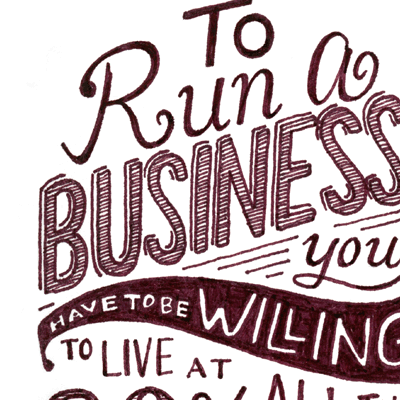 TO
Run a
BUSINESS
you
HAVE TO BE WILLING
TO LIVE AT